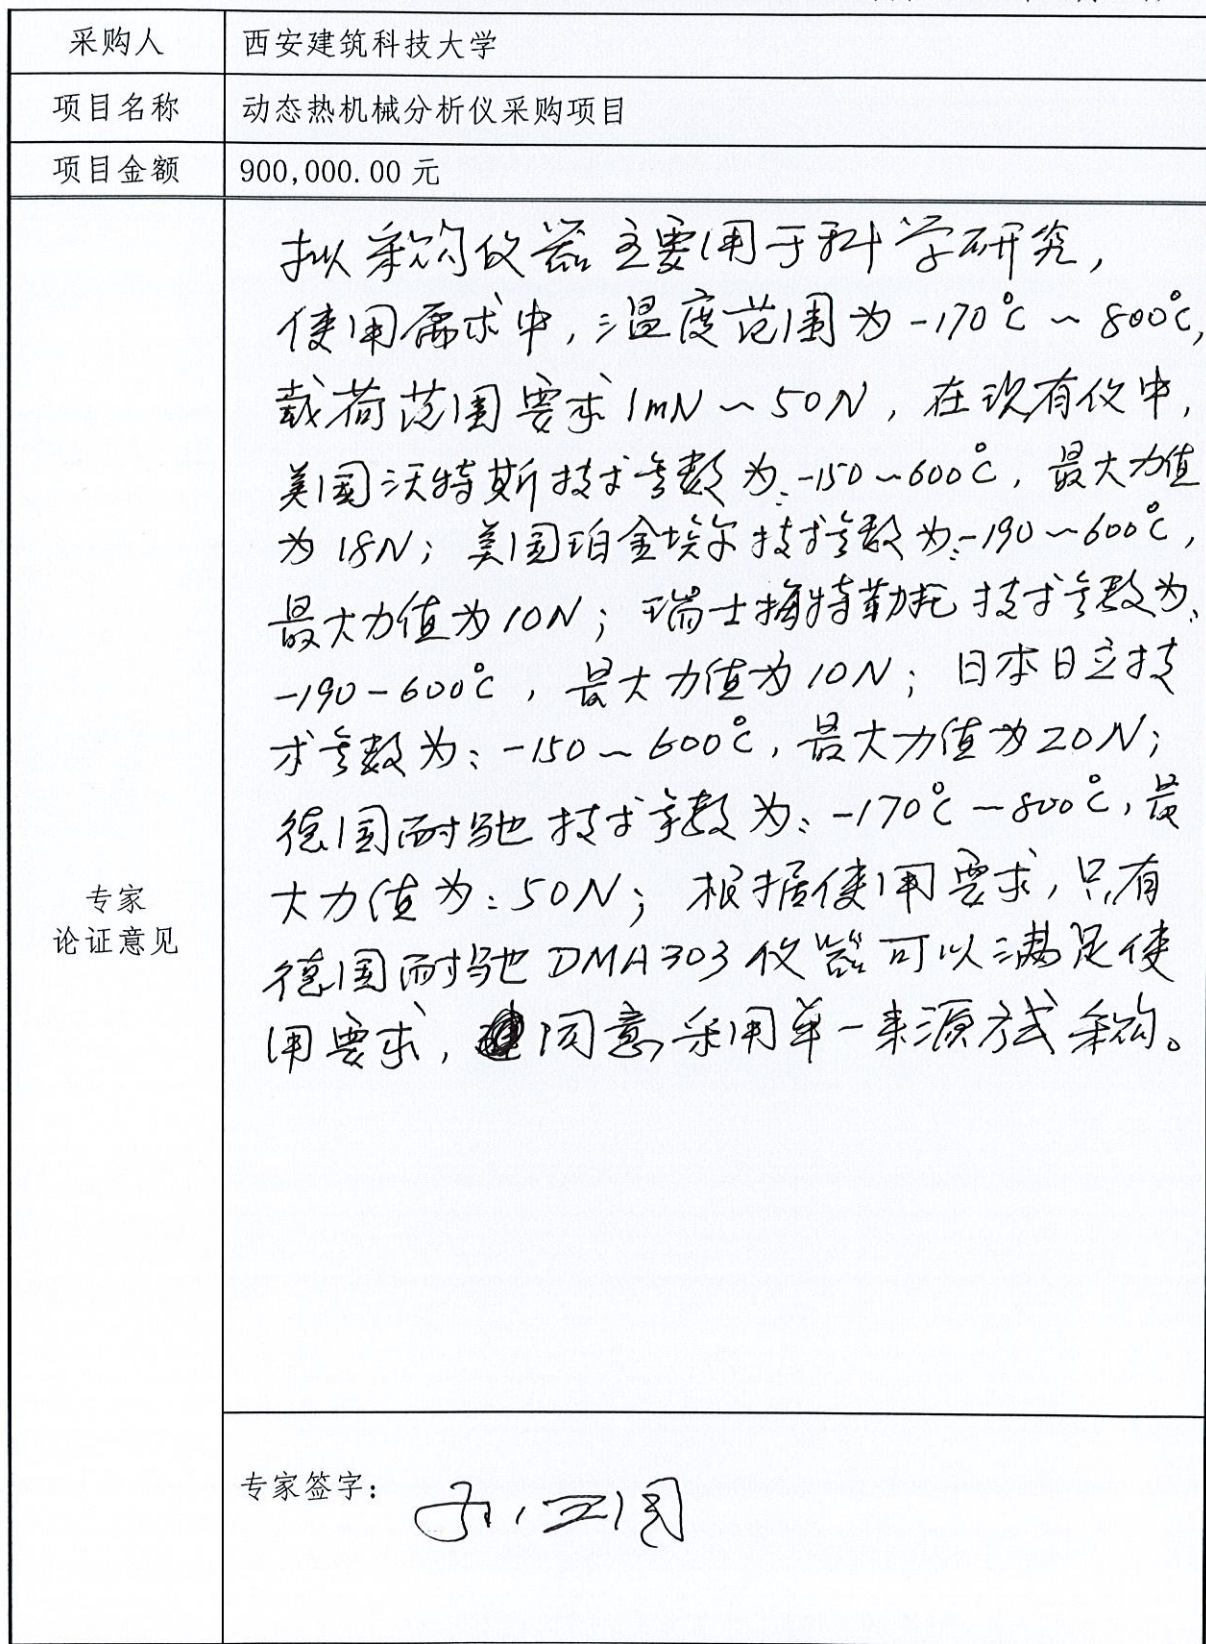 采购人 西安建筑科技大学
项目名称 动态热机械分析仪采购项目
项目金额 900,000.00 元
拟采购仪器主要用于科学研究,
使用需求中,温度范围为-170℃~800℃,
载荷范围要求1mN~50N,在现有仪中,
美国沃特斯技术参数为:-150~600℃,最大力值
为18N;美国珀金埃尔技术参数为:-190~600℃,
最大力值为10N;瑞士梅特勒托技术参数为:
-190-600℃,最大力值为10N;日本日立技
术参数为:-150~600℃,最大力值为20N;
德国耐驰技术参数为:-170℃~800℃,最
大力值为:50N;根据使用要求,只有
德国耐驰DMA303仪器可以满足使
用要求,同意采用单一来源方式采购。
专家
论证意见
专家签字: